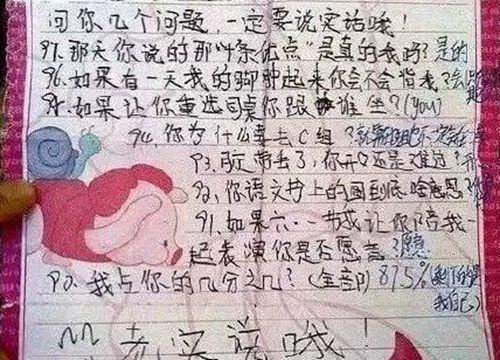 问你几个问题,一定要说实话哦!
97.那天你说的那“条优点”是真的我吗?是的
96.如果有一天我的脚肿起来你会不会背我?会
95.如果让你重选同桌你跟谁坐?(you)
94.你为什么要去C组?
93.丢了,你开心还是难过?
92.你语文书上的图到底啥意思?
91.如果六一节或让你陪我一
起表演你是否愿意?愿意
90.我占你的几分之几?(全部)87.5%(剩下的是
我自己)
老实说哦!